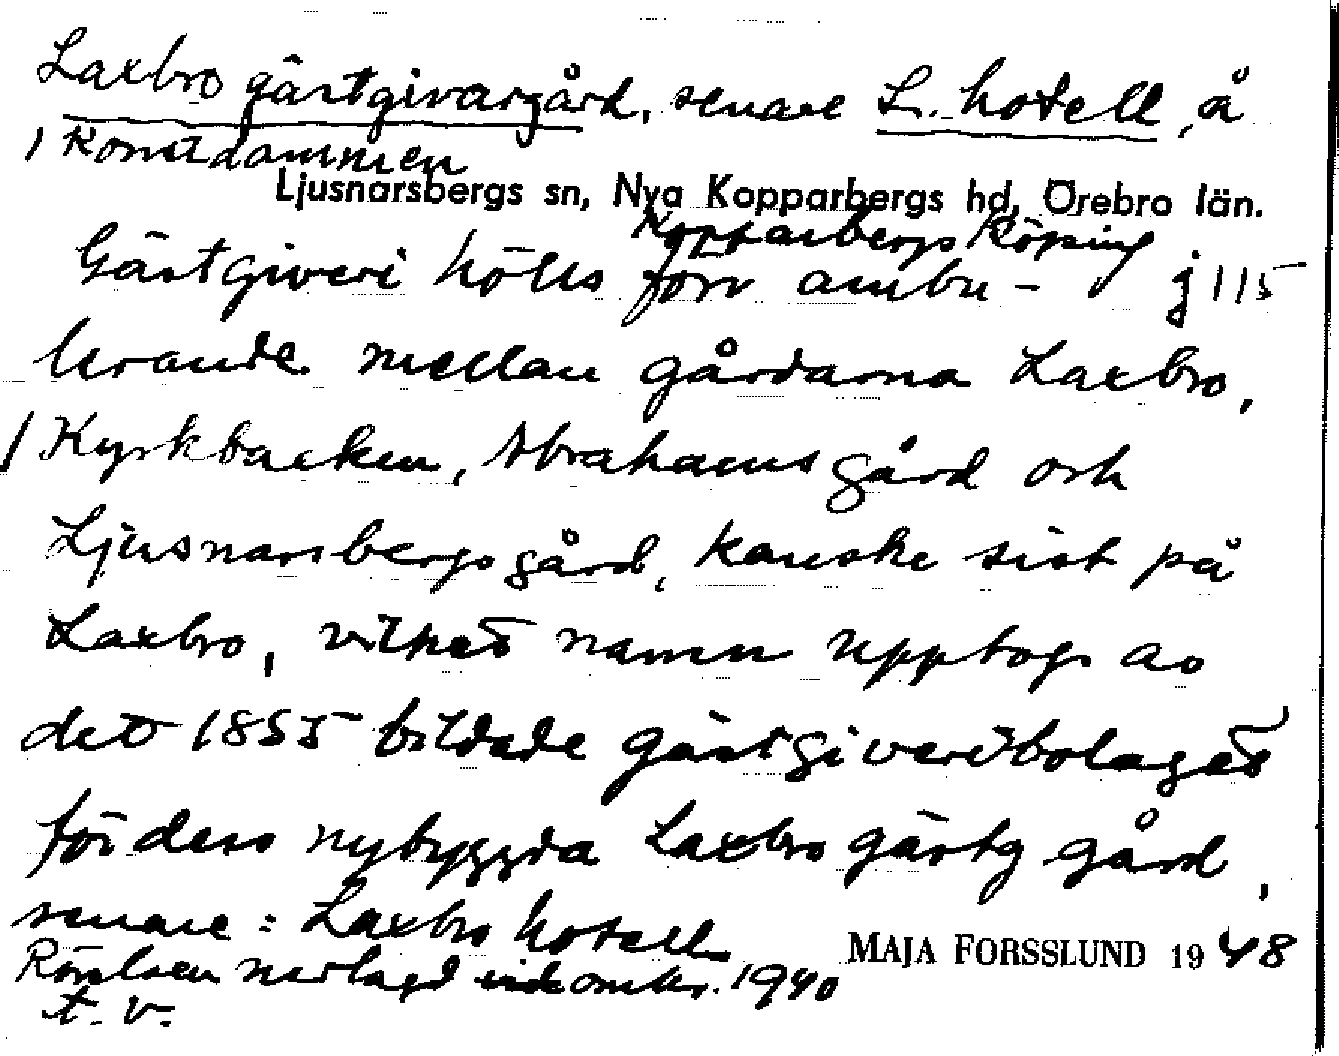 Laxbro gästgivargård, senare L. hotell, å
/ Konstdammen
Ljusnarsbergs sn, Nya Kopparbergs hd, Örebro län.
Kopparbergs köping
Gästgiveri hölls förr ambu- j 115
lerande mellan gårdarna Laxbro,
/ Kyrkbacken, Abrahamsgård och
Ljusnarsbergsgård, kanske sist på
Laxbro, vilket namn upptogs av
det 1855 bildade gästgiveribolaget
för dess nybyggda Laxbro gästg gård,
senare: Laxbro hotell
Rörelsen nerlagd omkr. 1940
t. v.
MAJA FORSSLUND 1948